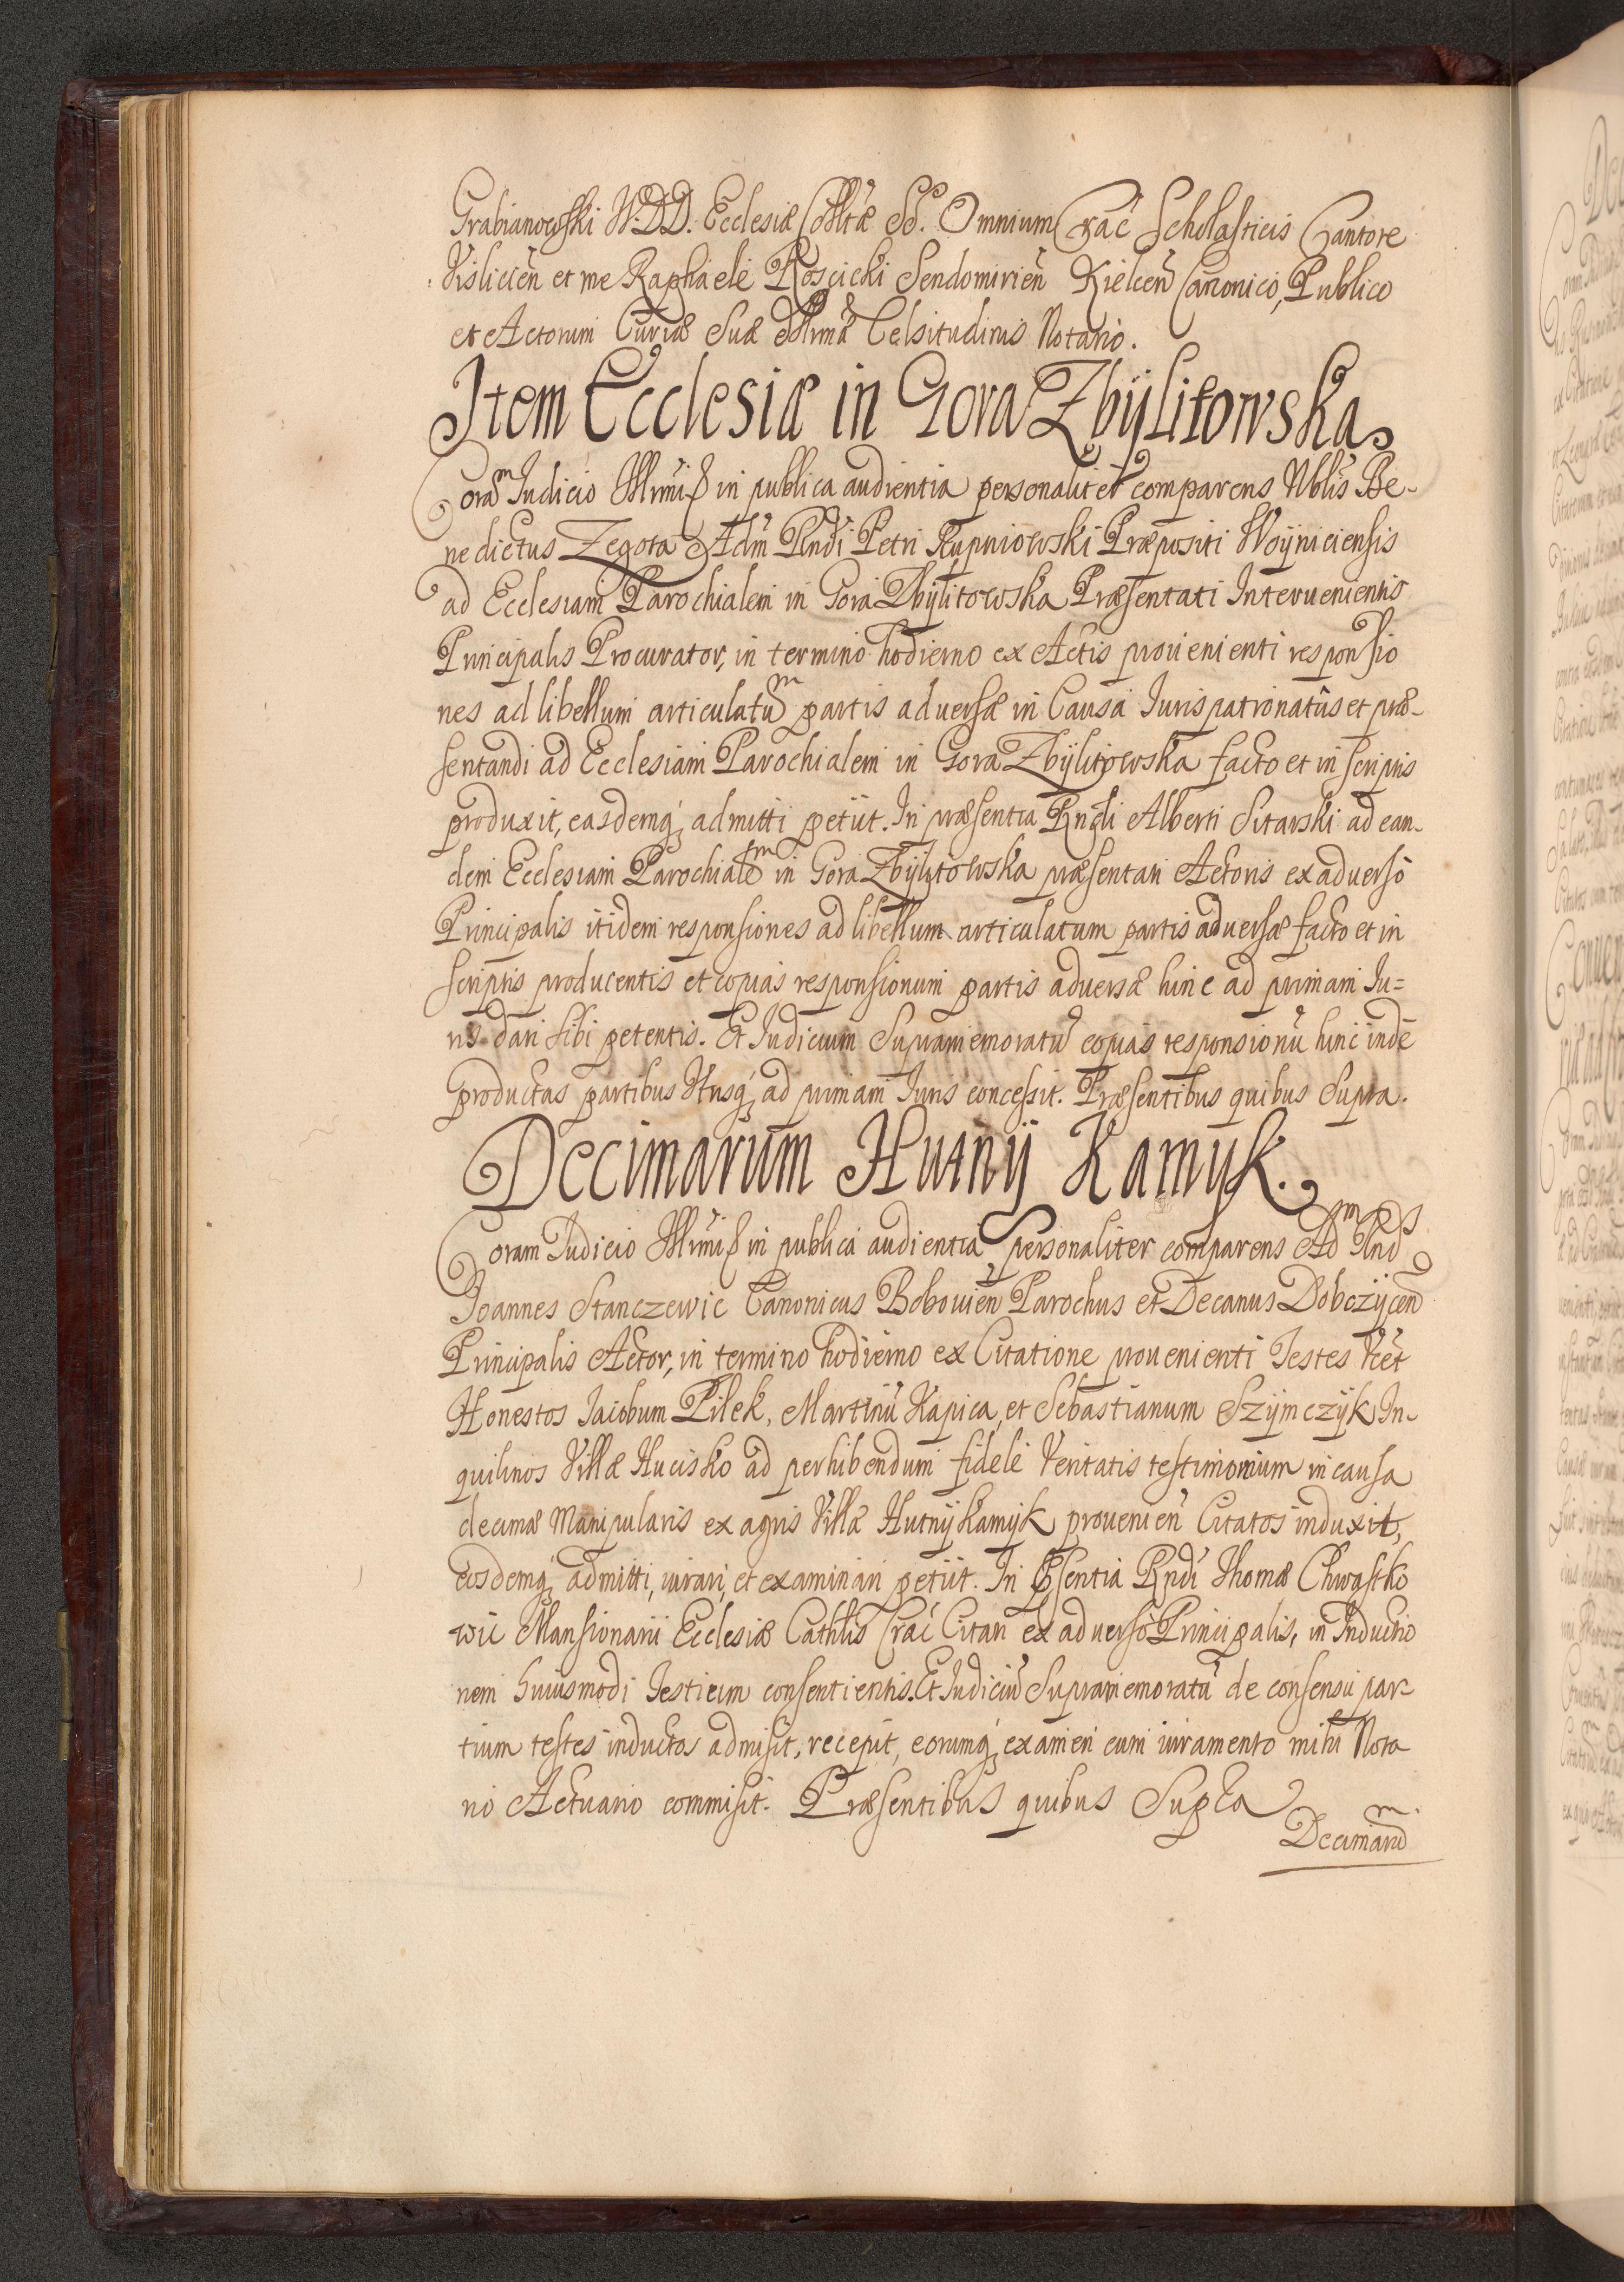 Grabianowski W.DD. Ecclesiæ Colltæ SS. Omnium Crac̄ Scholasticis Cantore
Visliciēn et me Raphaele Roscicki Sendomiriēn Kielceñ Canonico, Publico
et Actorum Curiæ Suæ Illrmæ Celsitudinis Notario.
Item Ecclesiæ in Gora Zbÿlitowska
Corā Judicio Illrmiß in publica audientia personaliter comparens Nblis Be-
nedictus Zegota Adm Rndi Petri Rupniowski Præpositi Woÿniciensis
ad Ecclesiam Parochialem in Gora Zbÿlitowska Præsentati Interuenientis
Principalis Procurator, in termino hodierno ex Actis prouenienti responsio
nes ad libellum articulatū partis aduersæ in Causa Iurispatronatûs et præ-
sentandi ad Ecclesiam Parochialem in Gora Zbÿlitowska facto et in scriptis
produxit, easdemq; admitti petiit. In præsentia Rndi Alberti Sitarski ad ean-
dem Ecclesiam Parochialē in Gora Zbÿlitowska præsentati Actoris ex aduerso
Principalis itidem responsiones ad libellum articulatum partis aduersæ facto et in
scriptis producentis et copias responsionum partis aduersæ hinc ad primam Iu=
ris dari sibi petentis. Et Iudicium Supramemoratū copias responsionū hinc inde
productas partibus Utrisq; ad primam Iuris concessit. Præsentibus quibus Supra.
Decimarum Hutnÿ Kamyk.
Coram Judicio Illrmiß in publica audientia personaliter comparens Adm Rnds
Joannes Stanczewic Canonicus Boboviēn Parochus et Decanus Dobczÿcen̄
Principalis Actor, in termino hodierno ex Citatione prouenienti Testes Vcet
Honestos Iacobum Pilek, Martinū Kapica, et Sebastianum Szÿmczÿk In-
quilinos Villæ Hucisko ad perhibendum fidele Veritatis testimonium in causa
decimæ Manipularis ex agris Villæ Hutnÿ Kamÿk prouenien̄ Citatos induxit,
eosdemq; admitti, iurari, et examinari petiit. In Psentia Rndi Thomæ Chwastko
wic Mansionarii Ecclesiæ Cathlis Crac̄ Citati ex aduerso Principalis, in Inductio
nem huiusmodi Testium consentientis. Et Iudiciū Supramemoratū de consensu par-
tium testes inductos admisit, recepit, eorumq; examen cum iuramento mihi Nota
rio Actuario commisit. Præsentibus quibus Supra
Decimarū